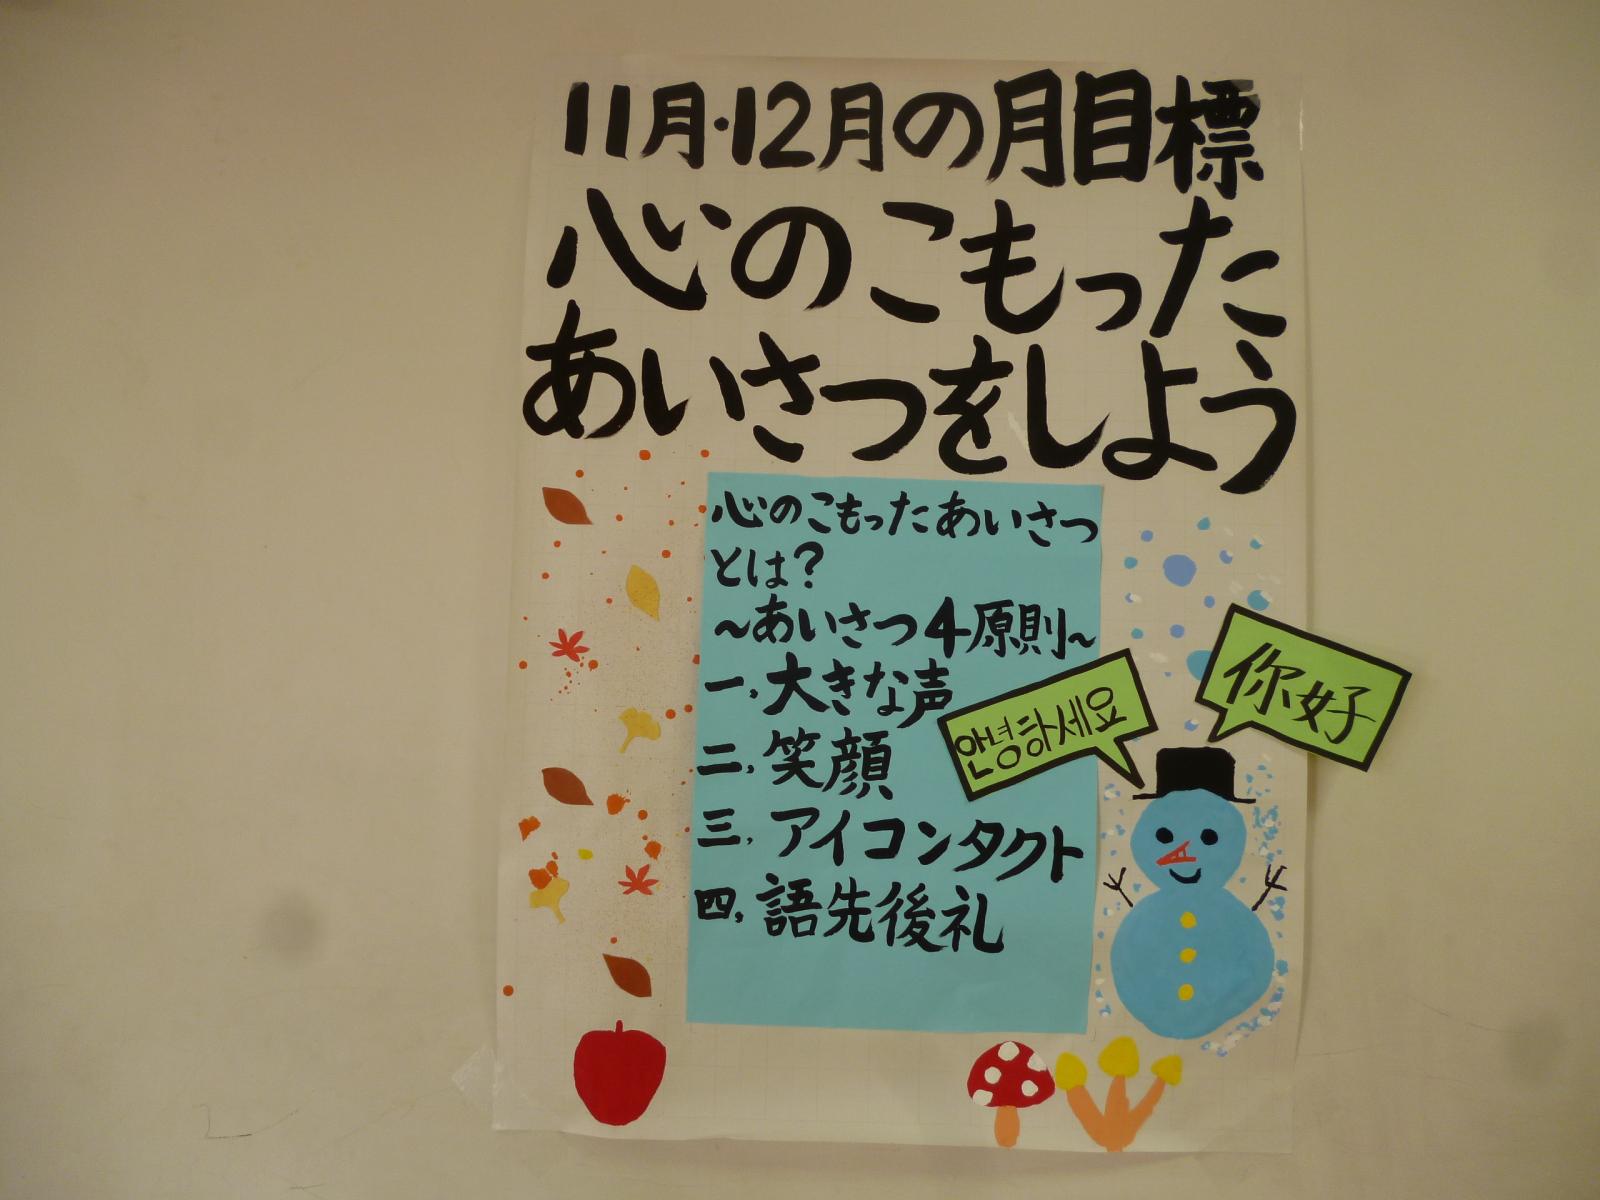 11月・12月の月目標
心のこもった
あいさつをしよう
心のこもったあいさつ
とは?
～あいさつ4原則～
一、大きな声
二、笑顔
三、アイコンタクト
四、語先後礼
안녕하세요
你好